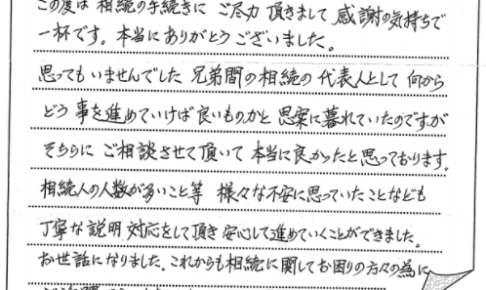 この度は 相続の手続きに ご尽力 頂きまして 感謝の気持ちで
一杯です。本当にありがとうございました。
思ってもいませんでした 兄弟間の相続の代表人として 何から
どう 事を進めていけば良いものかと 思案に暮れていたのですが
そちらに ご相談させて頂いて 本当に良かったと思っております。
相続人の人数が多いこと等 様々な不安に思っていたことなども
丁寧な説明 対応をして頂き 安心して進めていくことができました。
お世話になりました。これからも相続に関してお困りの方々の為に